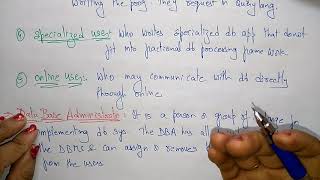 writing the prog. They request in Query lang.
④ specialized user Who writes specialized db app that donot
fit into fractional db processing frame work.
⑤ online users Who may communicate with db directly
through online
Data Base Administrator It is a person or group of
implementing db sys. The DBA has all
the DBMS & can assign & removes
from the users